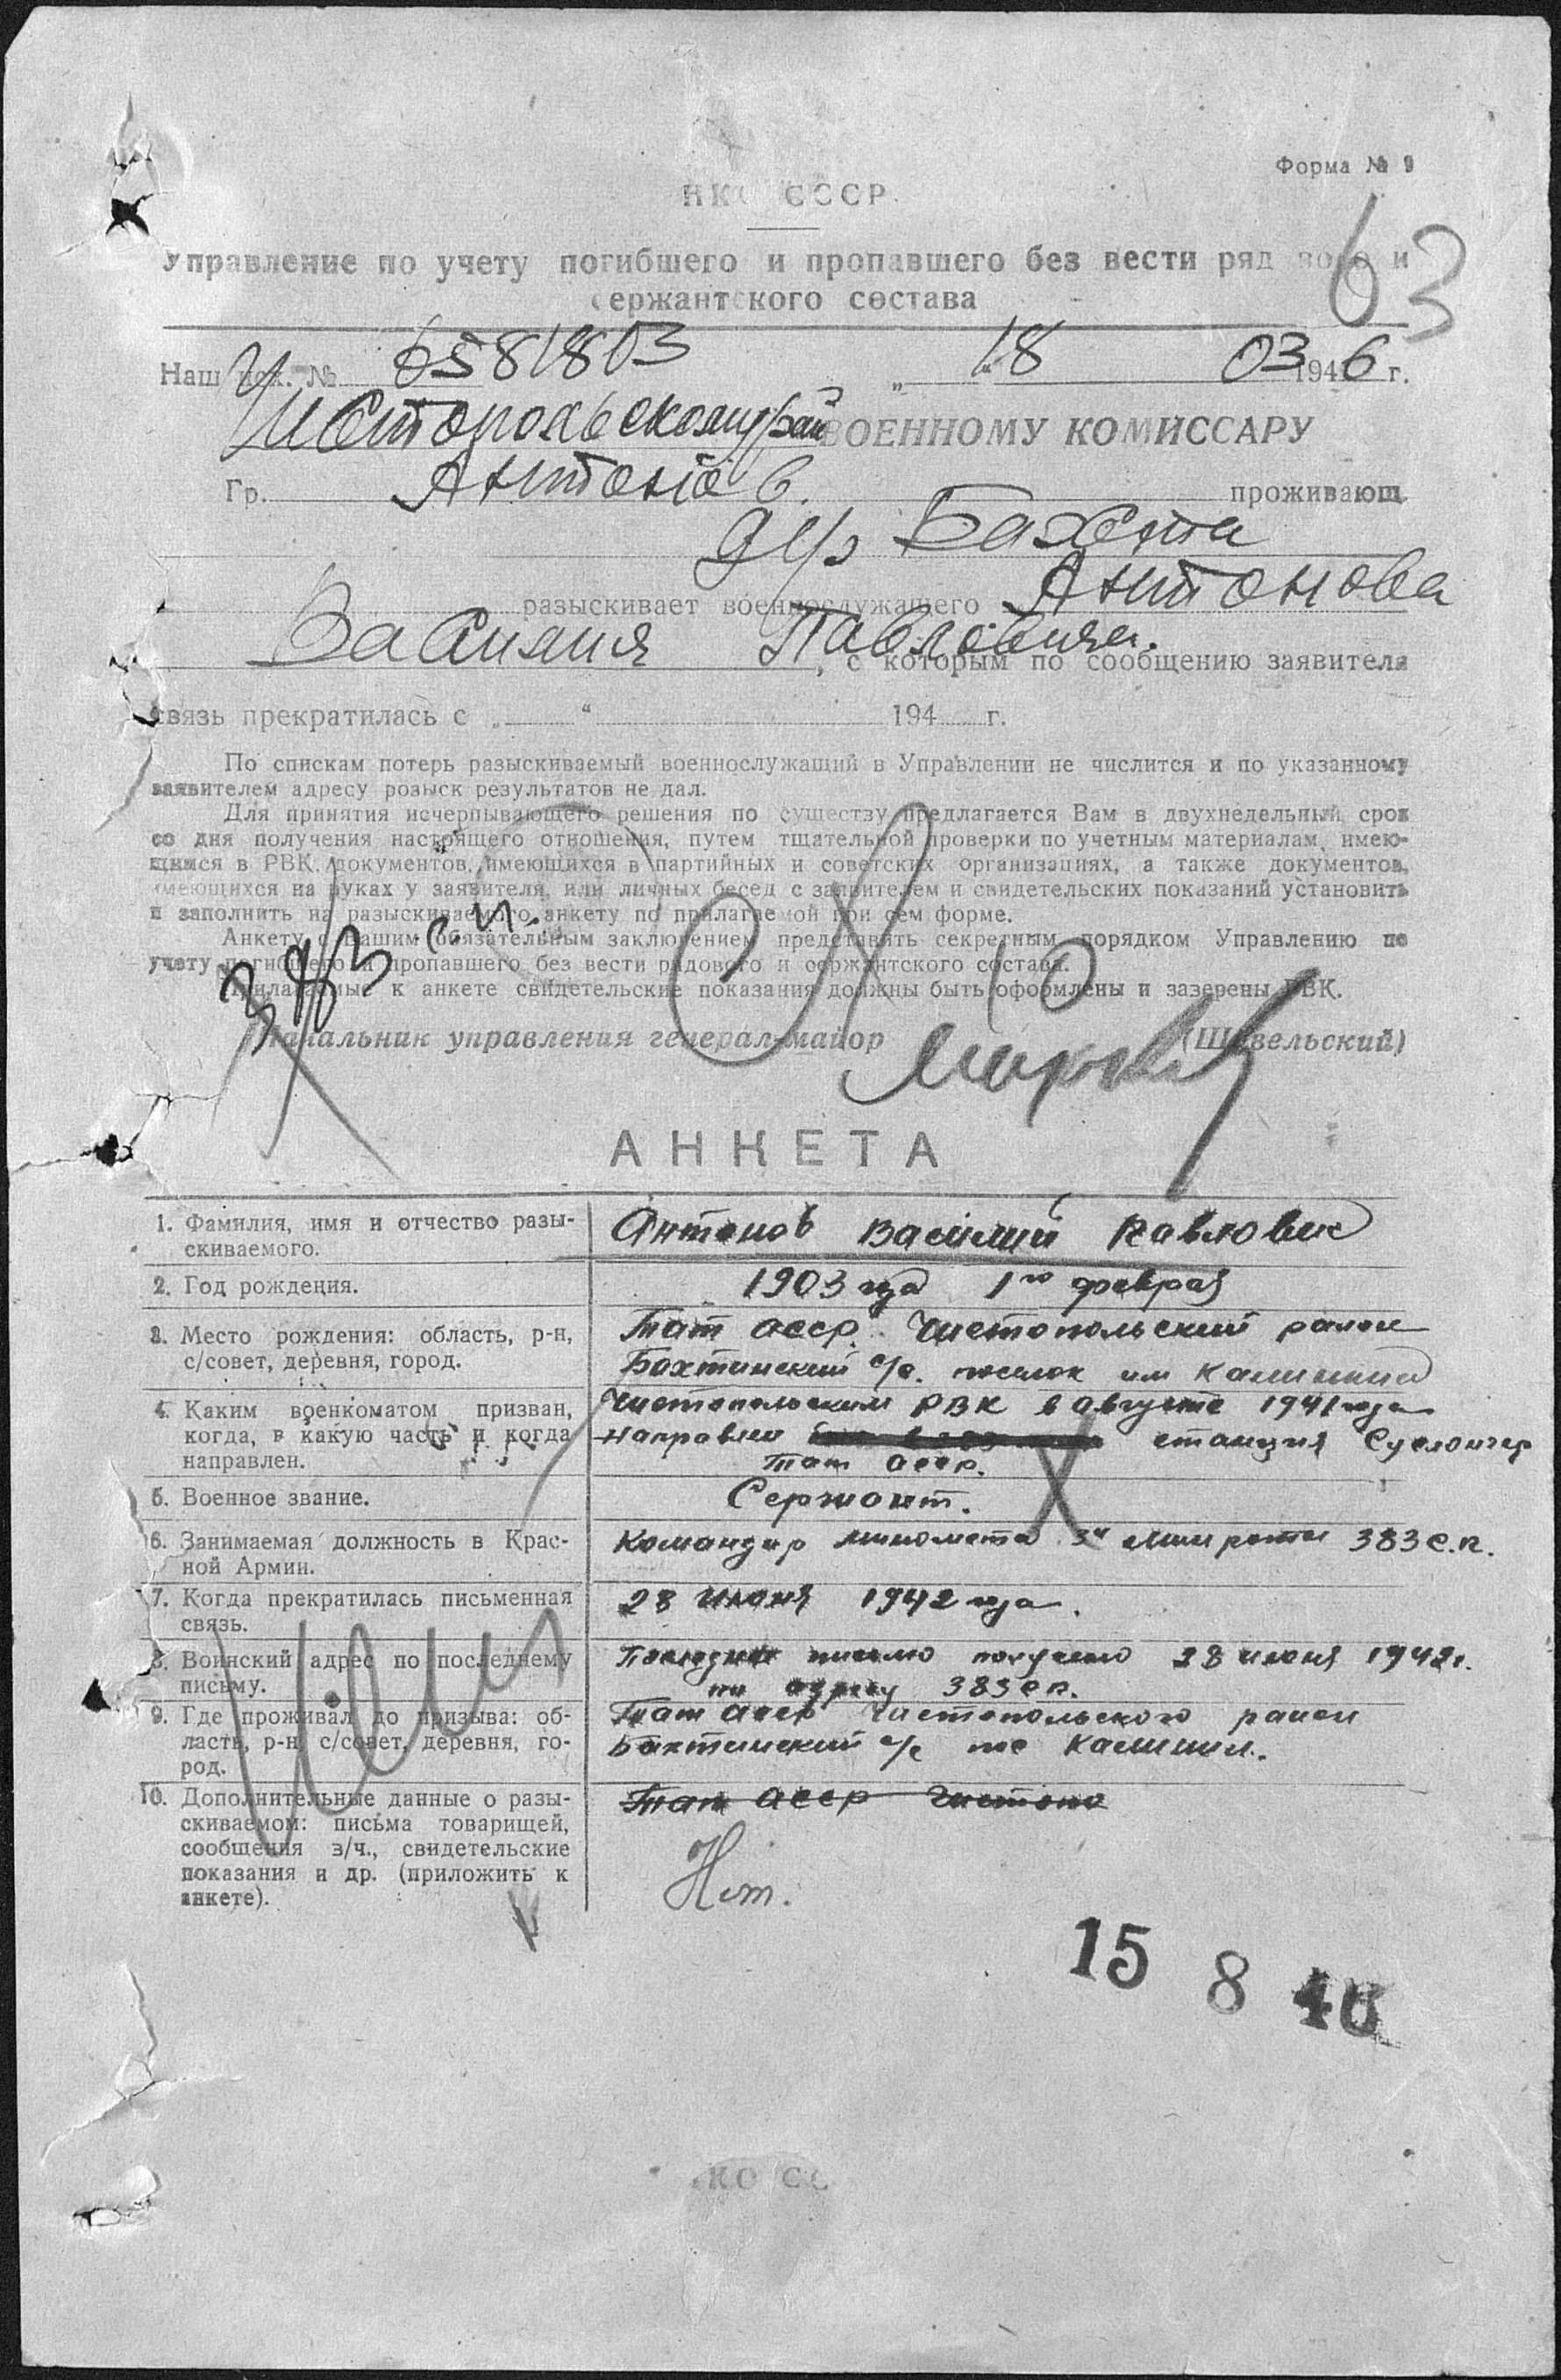 Форма № 9
63
НКО СССР.
Управление по учету погибшего и пропавшего без вести рядового и
сержантского состава
Наш исх. № 6581803 „18" 03 1946 г.
Чистопольскому рай ВОЕННОМУ КОМИССАРУ
Гр. Антонов. проживающ.
дер Бахта
разыскивает военнослужащего Антонова
Василия Павловича, с которым по сообщению заявителя
связь прекратилась с „ " 194 г.
По спискам потерь разыскиваемый военнослужащий в Управлении не числится и по указанному
заявителем адресу розыск результатов не дал.
Для принятия исчерпывающего решения по существу предлагается Вам в двухнедельный срок
со дня получения настоящего отношения, путем тщательной проверки по учетным материалам, имею-
щимся в РВК, документов, имеющихся в партийных и советских организациях, а также документов,
имеющихся на руках у заявителя, или личных бесед с заявителем и свидетельских показаний установить
и заполнить на разыскиваемого анкету по прилагаемой при сем форме.
Анкету с Вашим обязательным заключением представить секретным порядком Управлению по
учету погибшего и пропавшего без вести рядового и сержантского состава.
Прилагаемые к анкете свидетельские показания должны быть оформлены и заверены РВК.
Начальник управления генерал-майор (Шавельский)
АНКЕТА
1. Фамилия, имя и отчество разы- Антонов Василий Павлович
скиваемого.
2. Год рождения. 1903 года 1го февраля
3. Место рождения: область, р-н, Тат АССР. Чистопольский район
с/совет, деревня, город. Бахтинский с/с. поселок им Калинина
4. Каким военкоматом призван, Чистопольским РВК в августе 1941 года
когда, в какую часть и когда направлен станция Суслонгер
направлен. Тат АССР.
5. Военное звание. Сержант.
6. Занимаемая должность в Крас- Командир миномета 3й мин роты 383 с.п.
ной Армии.
7. Когда прекратилась письменная 28 июня 1942 года.
связь.
8. Воинский адрес по последнему Последнее письмо получено 28 июня 1942г.
письму. по адресу 383 сп.
9. Где проживал до призыва: об- Тат АССР Чистопольского район
ласть, р-н, с/совет, деревня, го- Бахтинский с/с пос Калинин.
род.
10. Дополнительные данные о разы- Тат АССР Чистопо
скиваемом: письма товарищей,
сообщения з/ч., свидетельские
показания и др. (приложить к Нет.
анкете).
15 8 46